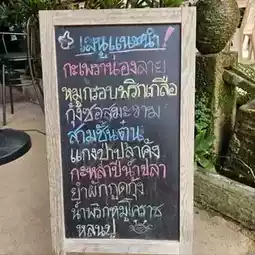 เมนูแนะนำ
กะเพราน่องลาย
หมูกรอบพริกเกลือ
กุ้งซอสมะขาม
สามชั้นต้ม
แกงป่าปลาคัง
กะหล่ำปีน้ำปลา
ยำผักกูดกุ้ง
น้ำพริกหมูโคราช
หลนปู